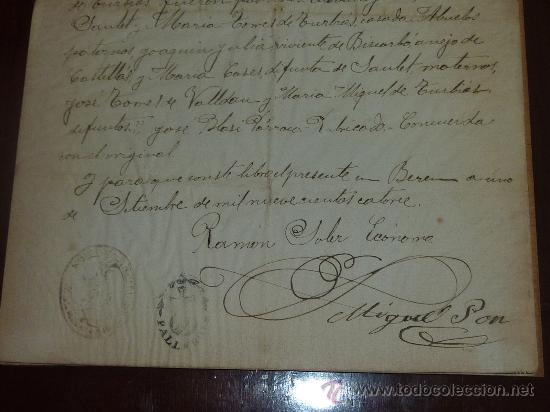 Saulet, y Maria Tomes de Turbias casada. Abuelos
paternos Joaquin y Julia viviente de Biscarbó anejo de
Castellás, y Maria Cases, difunta de Saulet, maternos,
José Tomes de Valldan y Maria Miguel de Turbias
difuntos. José Blasi Párroco Rubricado. Concuerda
con el original.
Y para que conste libro el presente en Beren a uno
de Setiembre de mil nuevecientos catorce.
Ramón Soler Ecónomo
Miguel Pon
PALL
todocoleccion.net